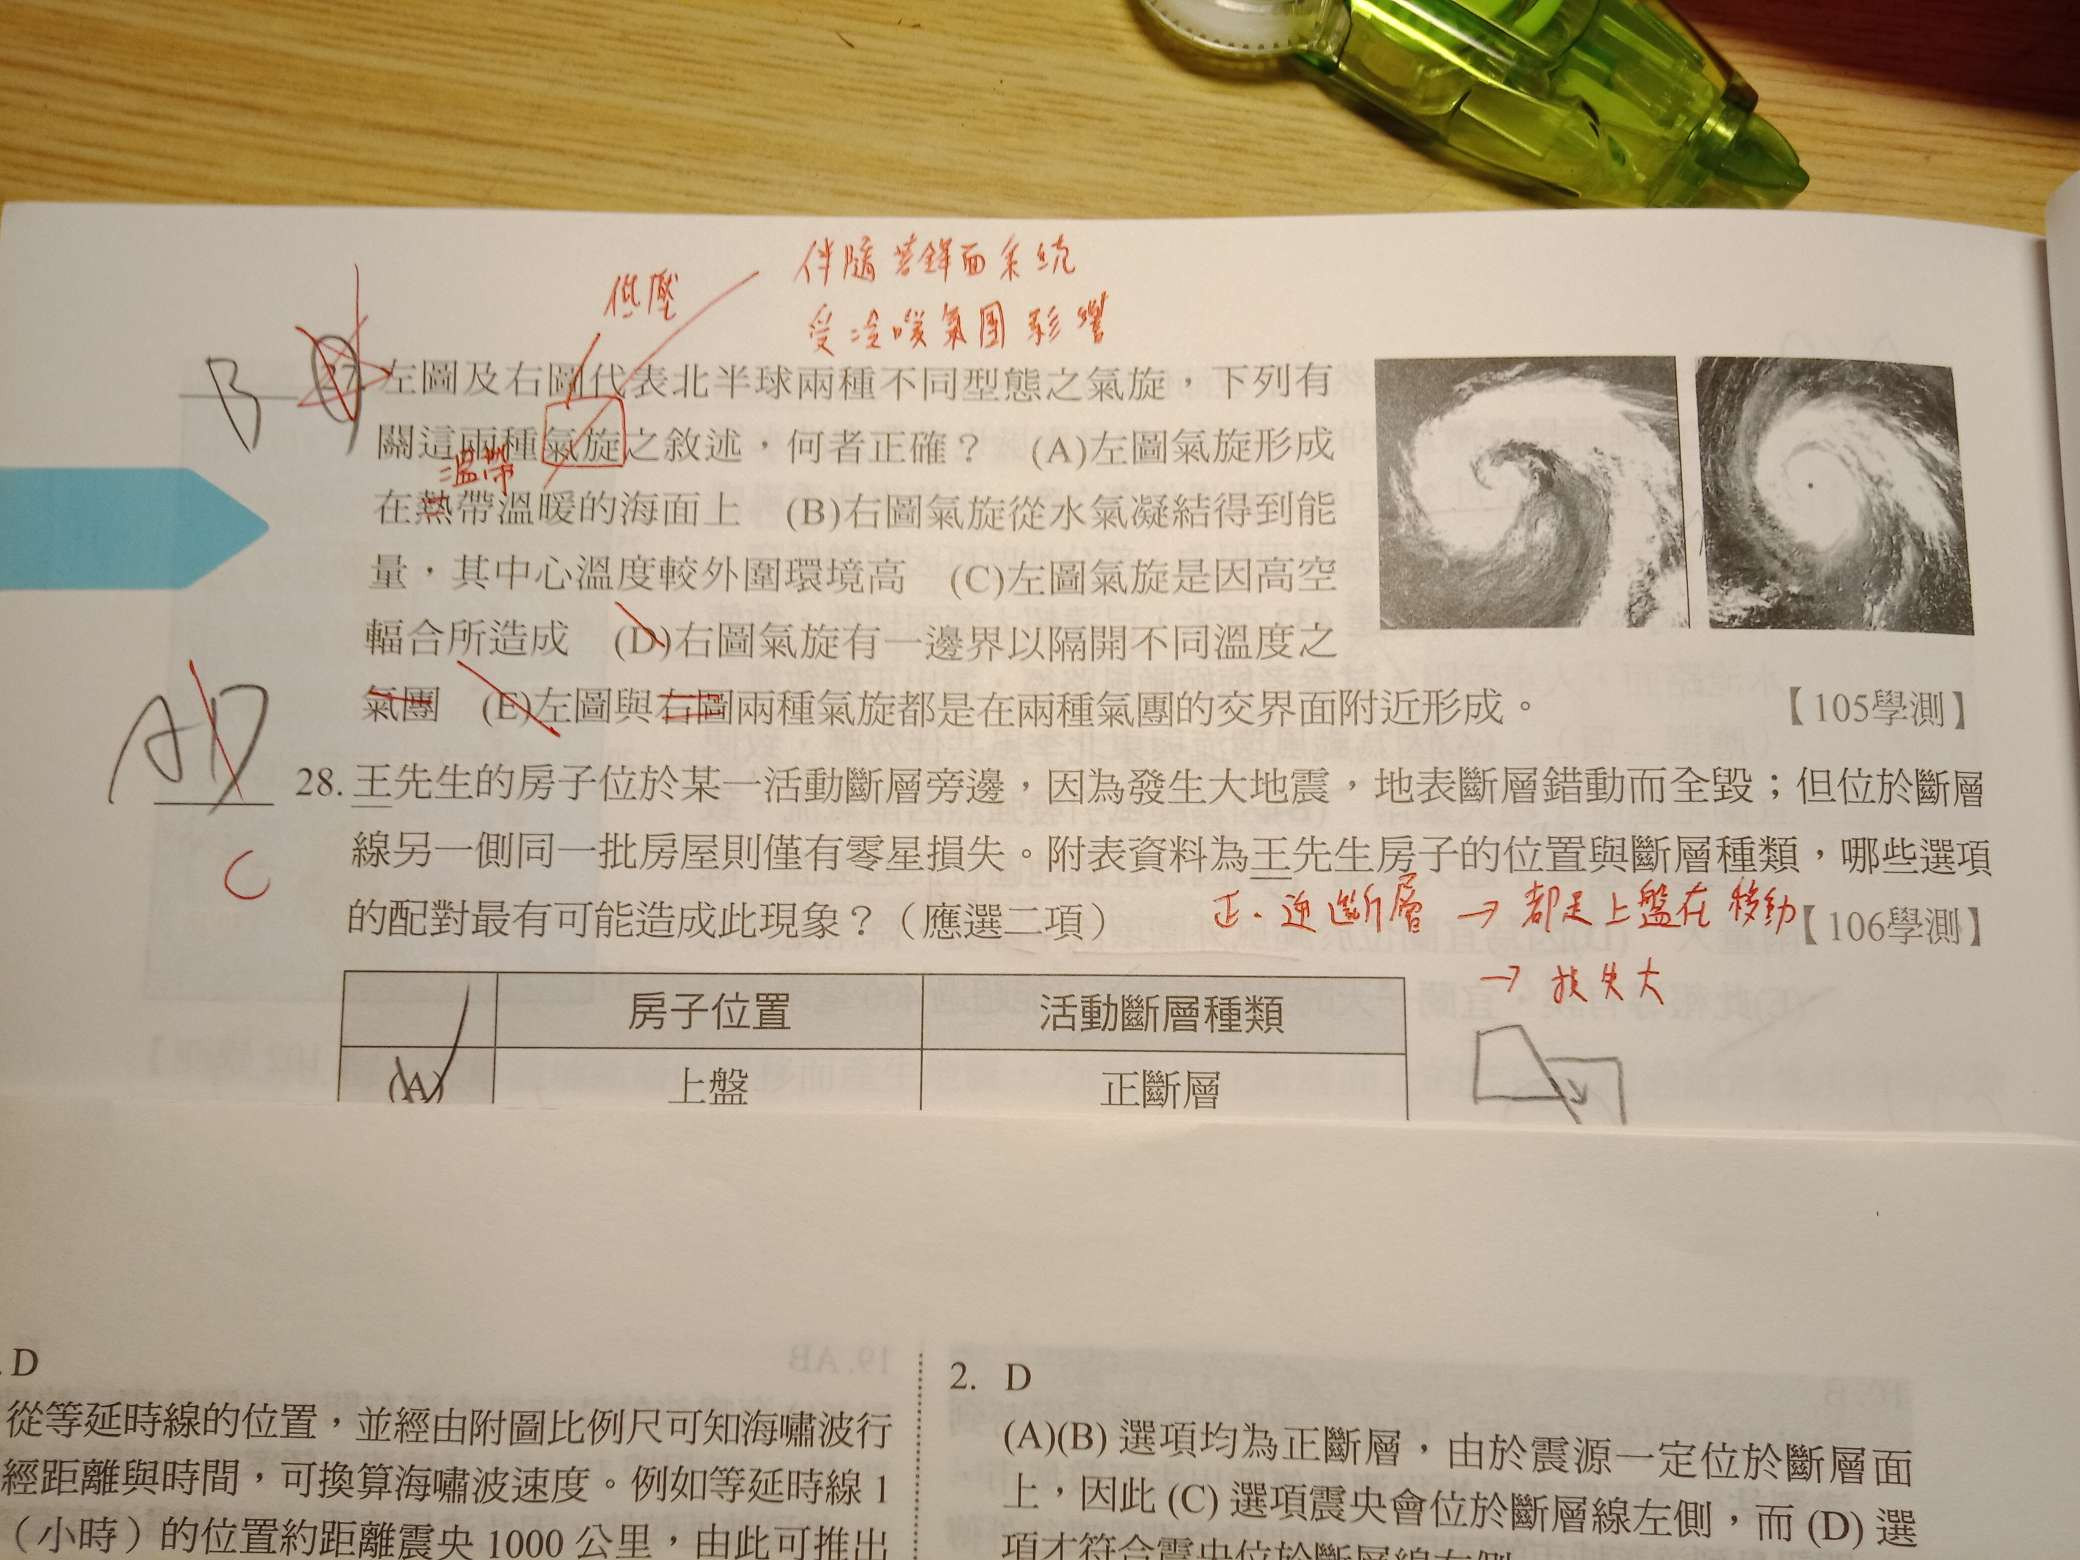 伴隨著鋒面系統
低壓
受冷暖氣團影響
B 27. 左圖及右圖代表北半球兩種不同型態之氣旋，下列有
關這兩種氣旋之敘述，何者正確？ (A)左圖氣旋形成
溫帶
在熱帶溫暖的海面上 (B)右圖氣旋從水氣凝結得到能
量，其中心溫度較外圍環境高 (C)左圖氣旋是因高空
輻合所造成 (D)右圖氣旋有一邊界以隔開不同溫度之
氣團 (E)左圖與右圖兩種氣旋都是在兩種氣團的交界面附近形成。 【105學測】
AD
28. 王先生的房子位於某一活動斷層旁邊，因為發生大地震，地表斷層錯動而全毀；但位於斷層
C
線另一側同一批房屋則僅有零星損失。附表資料為王先生房子的位置與斷層種類，哪些選項
的配對最有可能造成此現象？（應選二項） 【106學測】
正、逆斷層 → 都是上盤在移動
→ 損失大
房子位置 活動斷層種類
(A) 上盤 正斷層
. D
從等延時線的位置，並經由附圖比例尺可知海嘯波行
經距離與時間，可換算海嘯波速度。例如等延時線 1
（小時）的位置約距離震央 1000 公里，由此可推出
19. AB
2. D
(A)(B) 選項均為正斷層，由於震源一定位於斷層面
上，因此 (C) 選項震央會位於斷層線左側，而 (D) 選
項才符合震央位於斷層線右側